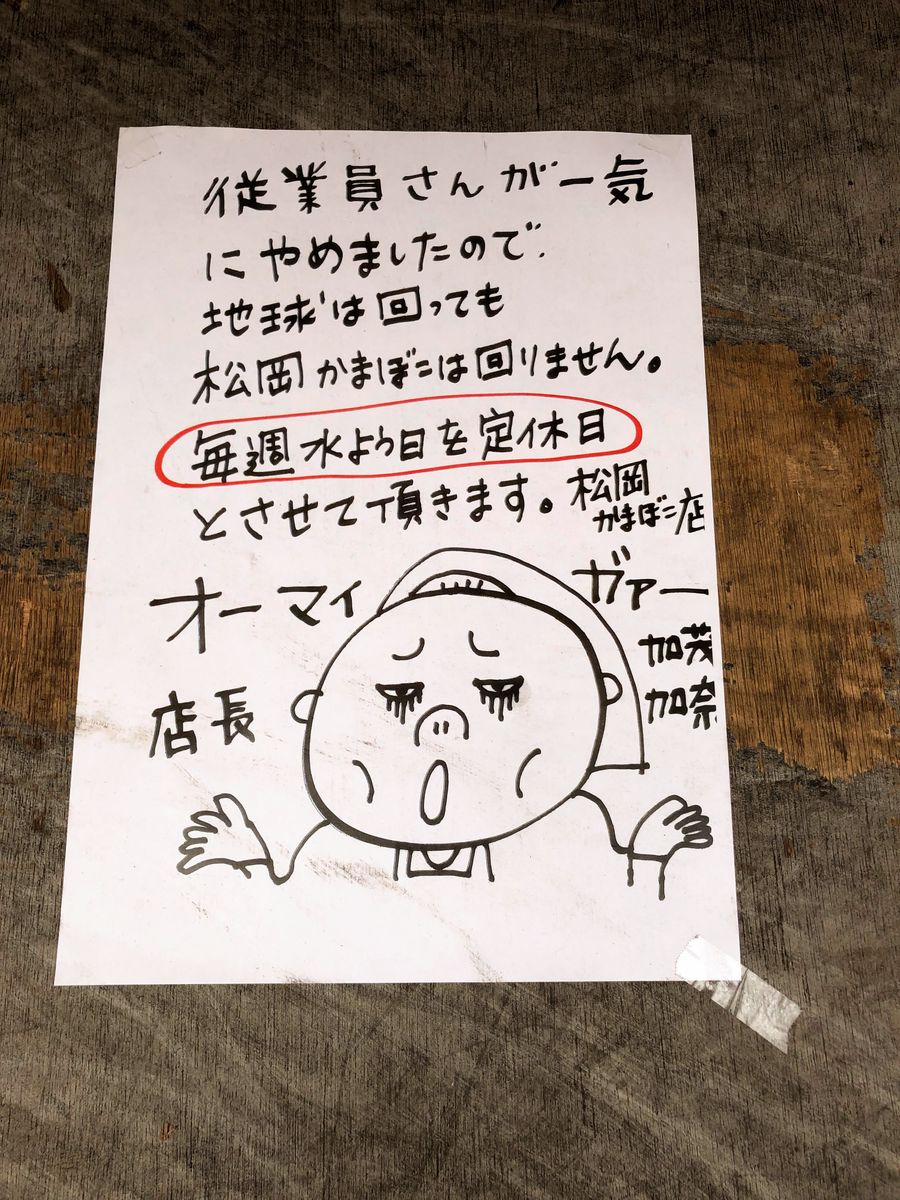 従業員さんが一気
にやめましたので、
地球は回っても
松岡かまぼこは回りません。
毎週水よう日を定休日
とさせて頂きます。
松岡
かまぼこ店
オーマイ
ガァー
店長
加茂
加奈